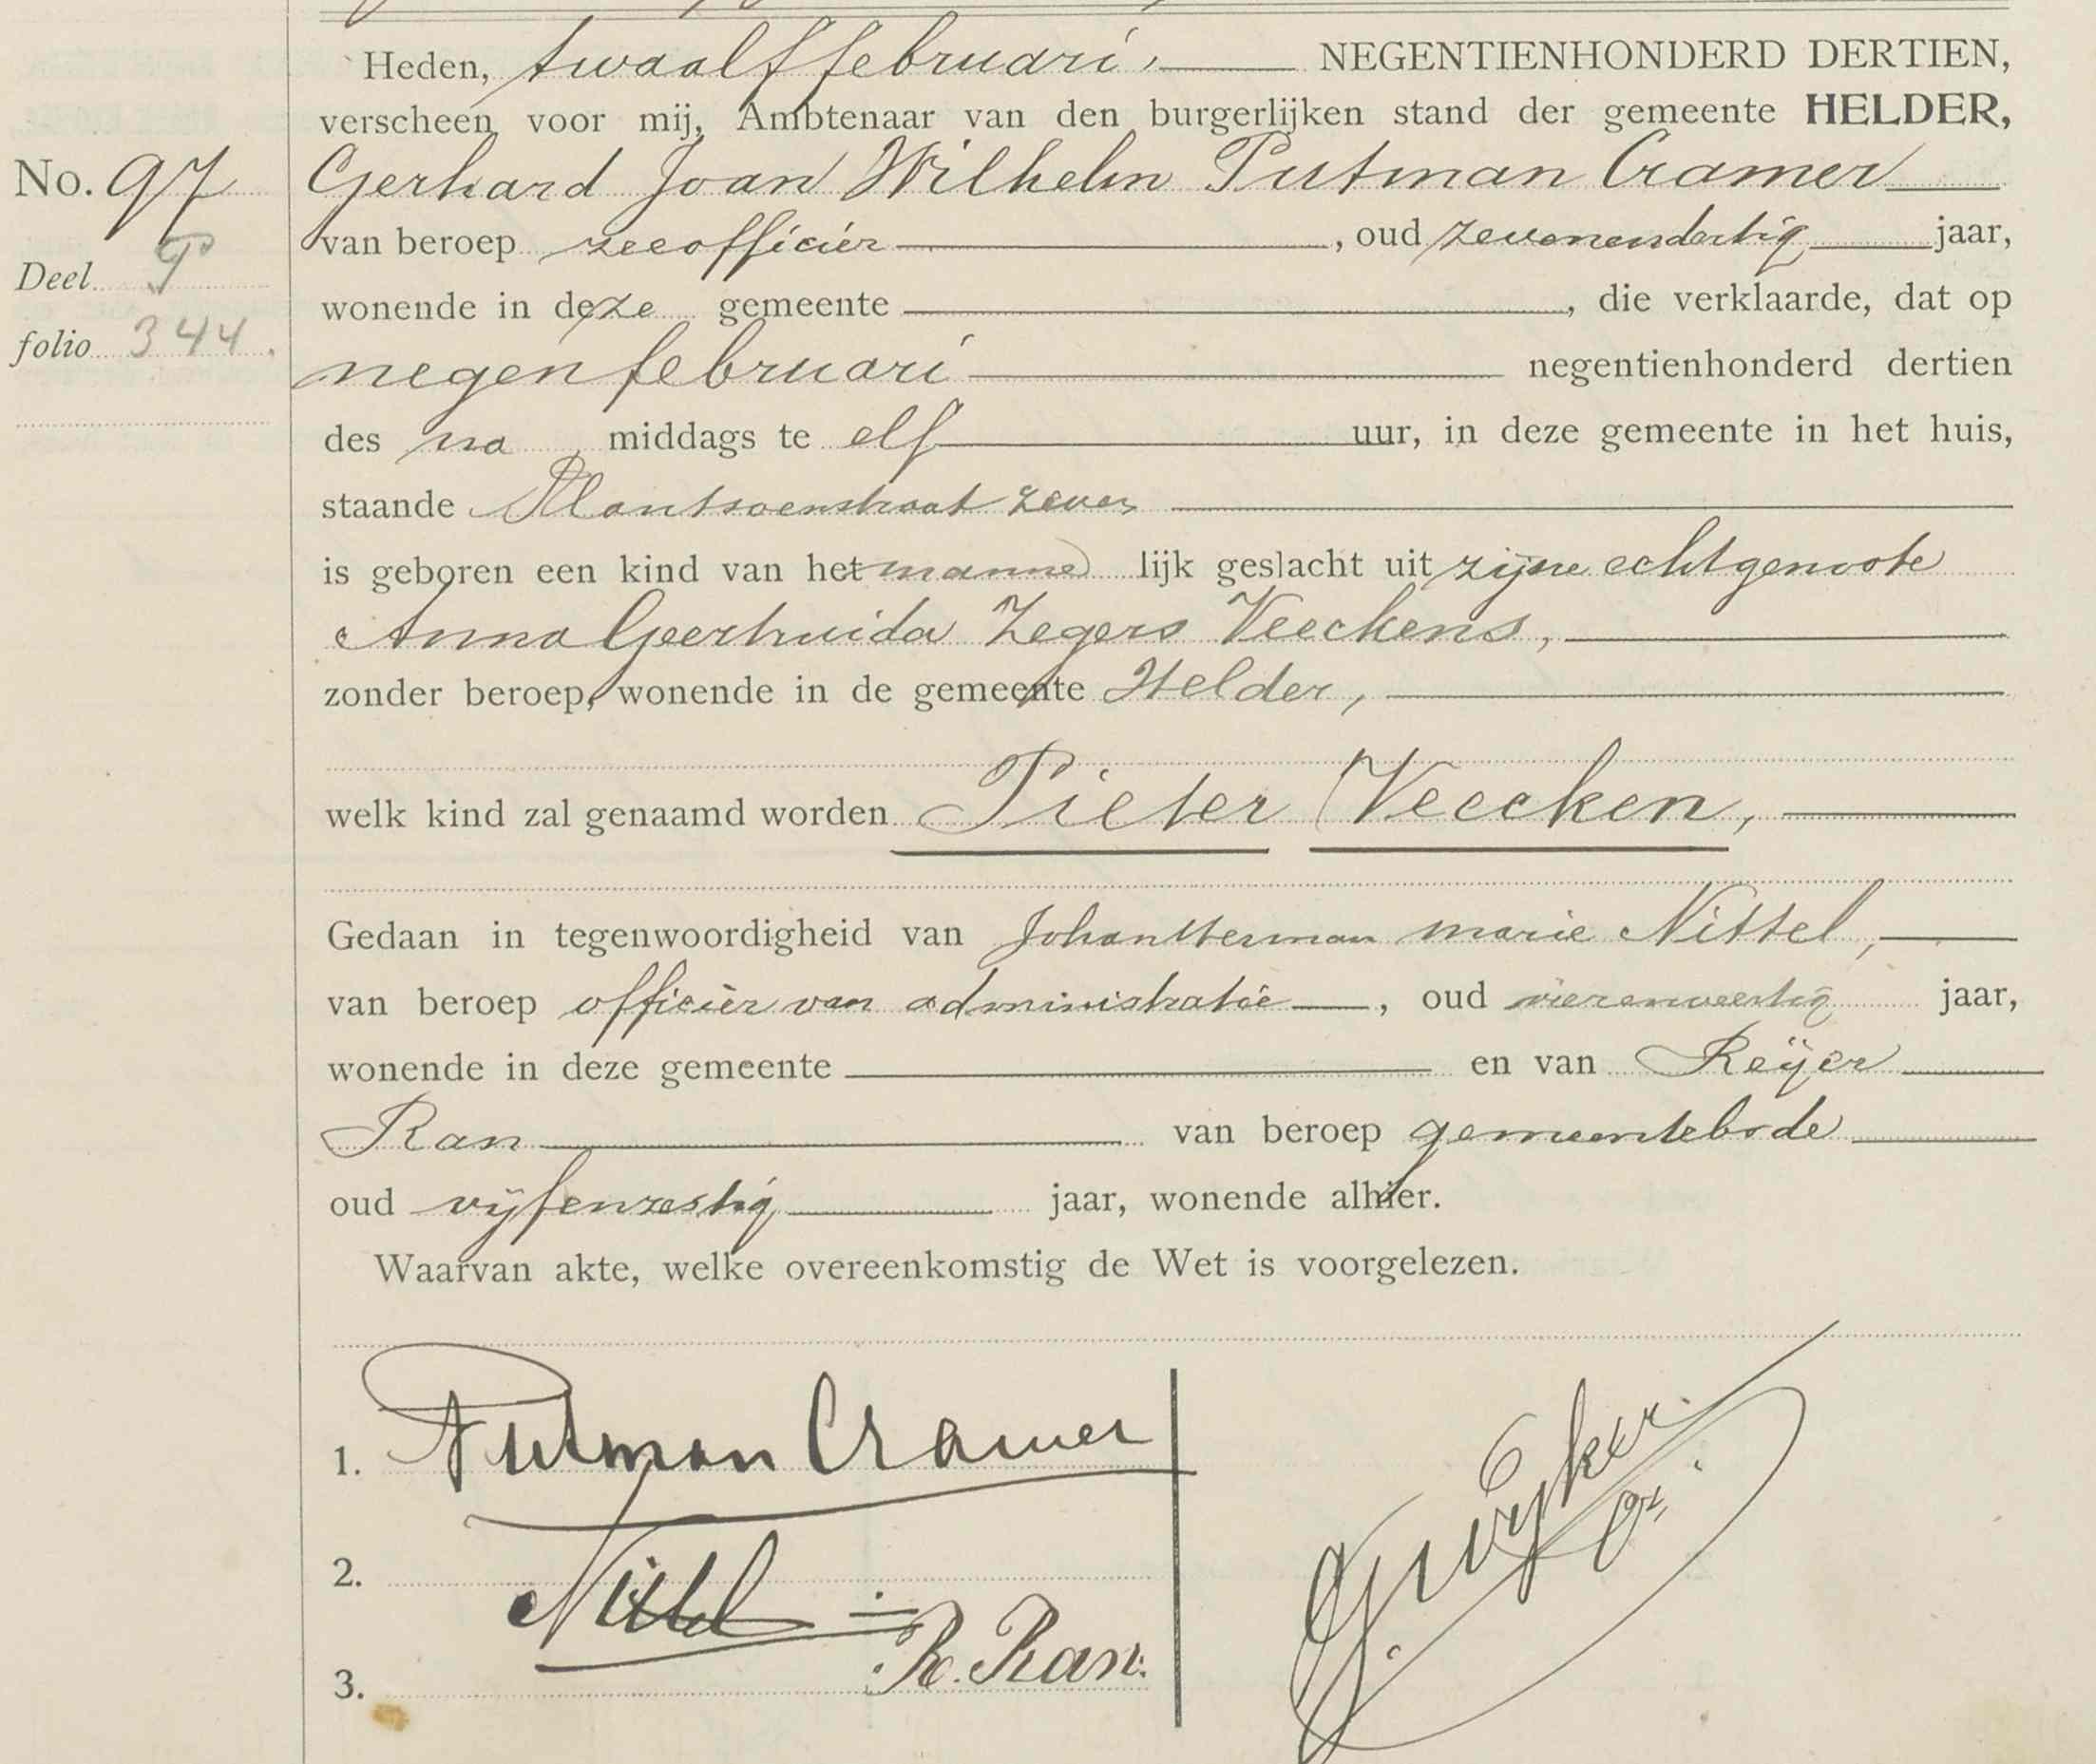 Heden, twaalf februari, NEGENTIENHONDERD DERTIEN,
verscheen voor mij, Ambtenaar van den burgerlijken stand der gemeente HELDER,
No. 97
Gerhard Joan Wilhelm Putman Cramer
van beroep zeeofficier, oud zevenendertig jaar,
Deel P
wonende in deze gemeente, die verklaarde, dat op
folio 344.
negen februari negentienhonderd dertien
des na middags te elf uur, in deze gemeente in het huis,
staande Plantsoenstraat zeven
is geboren een kind van het manne lijk geslacht uit zijne echtgenoote
Anna Geertruida Zegers Veeckens,
zonder beroep, wonende in de gemeente Helder,
welk kind zal genaamd worden Pieter Veecken,
Gedaan in tegenwoordigheid van Johan Herman marie Nittel,
van beroep officier van administratie, oud jaar,
wonende in deze gemeente en van Reijer
Ran van beroep gemeentebode
oud vijfenzestig jaar, wonende alhier.
Waarvan akte, welke overeenkomstig de Wet is voorgelezen.
1. Putman Cramer
2. Nittel
3. R. Ran.